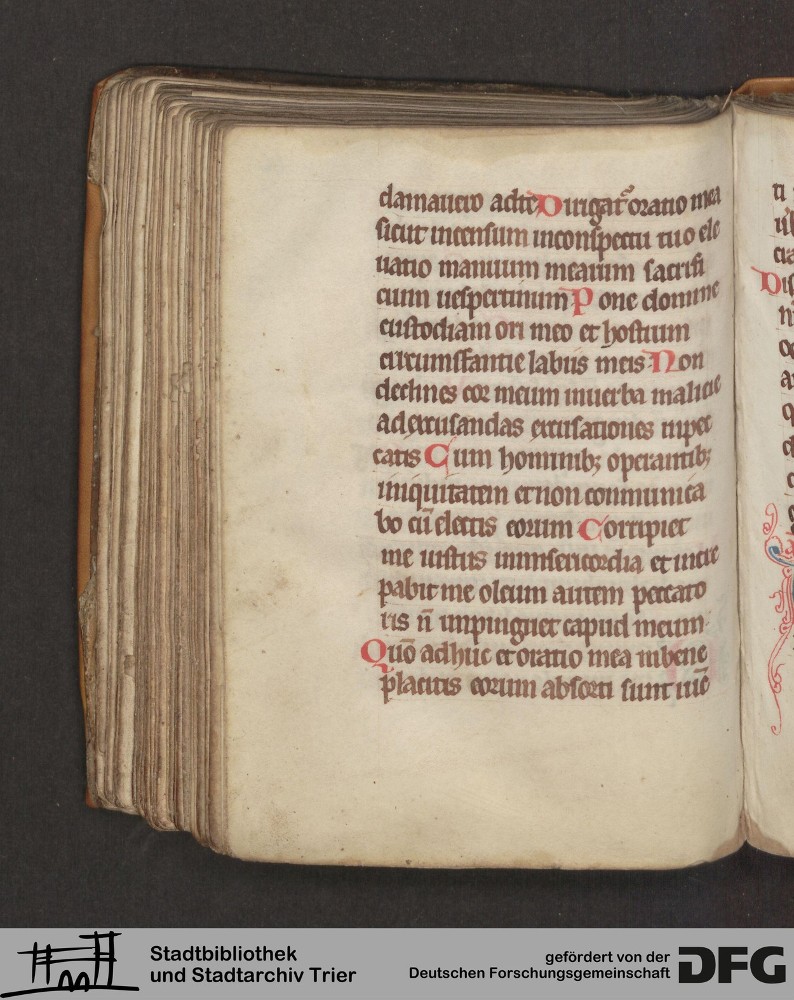 clamauero adte Dirigat᷑ oratio mea
sicut incensum inconspectu tuo ele
uatio manuum mearum sacrifi
cium uespertinum Pone domine
custodiam ori meo et hostium
circumstantie labiis meis Non
declines cor meum inuerba malicie
adexcusandas excusationes inpec
catis Cum hominibꝫ operantibꝫ
iniquitatem et non conmunica
bo cū electis eorum Corripiet
me iustus inmisericordia et incre
pabit me oleum autem peccato
ris n̄ inpinguet capud meum
Quō adhuc et oratio mea inbene
placitis eorum absorti sunt iuc̄
Stadtbibliothek
und Stadtarchiv Trier
gefördert von der
Deutschen Forschungsgemeinschaft
DFG